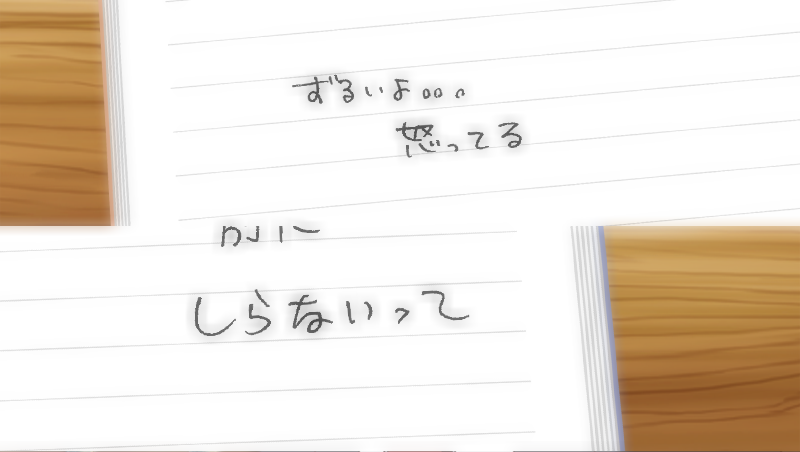 ずるいよ。。。
怒ってる
別に
しらないって